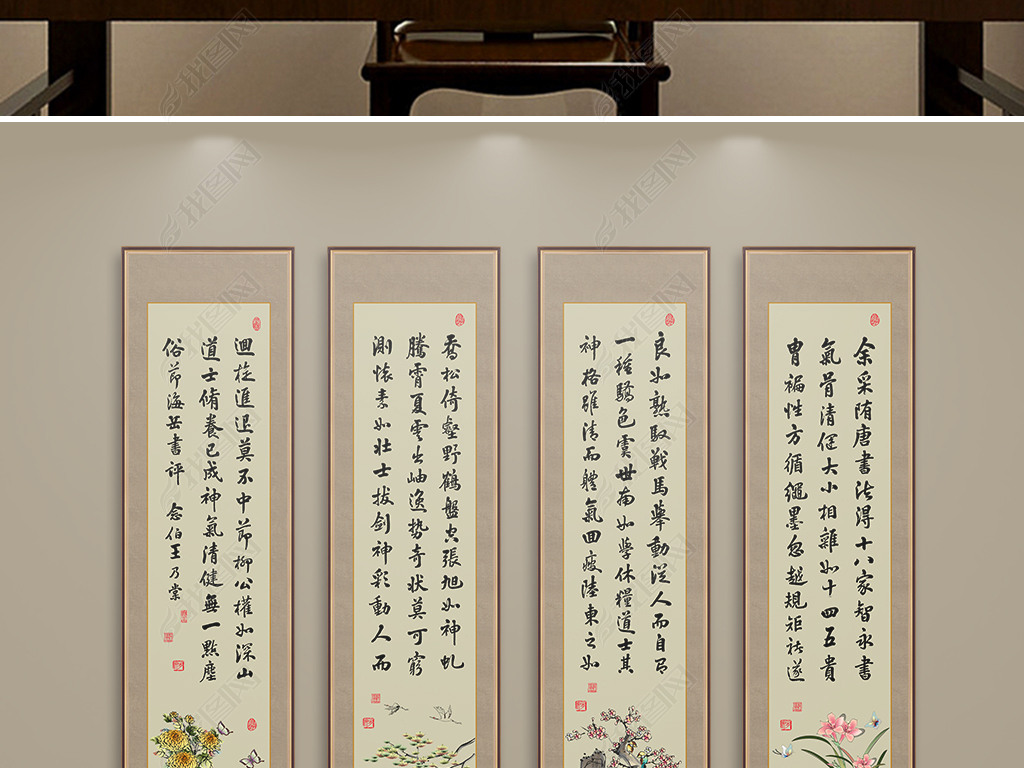 余采隋唐書法得十八家智永書
氣骨清健大小相雜如十四五貴
胄褊性方循繩墨忽越規矩諸遂
良如熟馭戰馬舉動從人而自
一種驕色虞世南如學休糧道士其
神格雖清而體氣疲陸東之如
喬松倚壑野鶴盤空張旭如神虬
騰霄夏雲出岫逸勢奇狀莫可窮
測懷素如壯士拔劍神彩動人而
迴旋進退莫不中節柳公權如深山
道士脩養已成神氣清健無一點塵
俗節海岳書評 念伯王乃棠
找图网